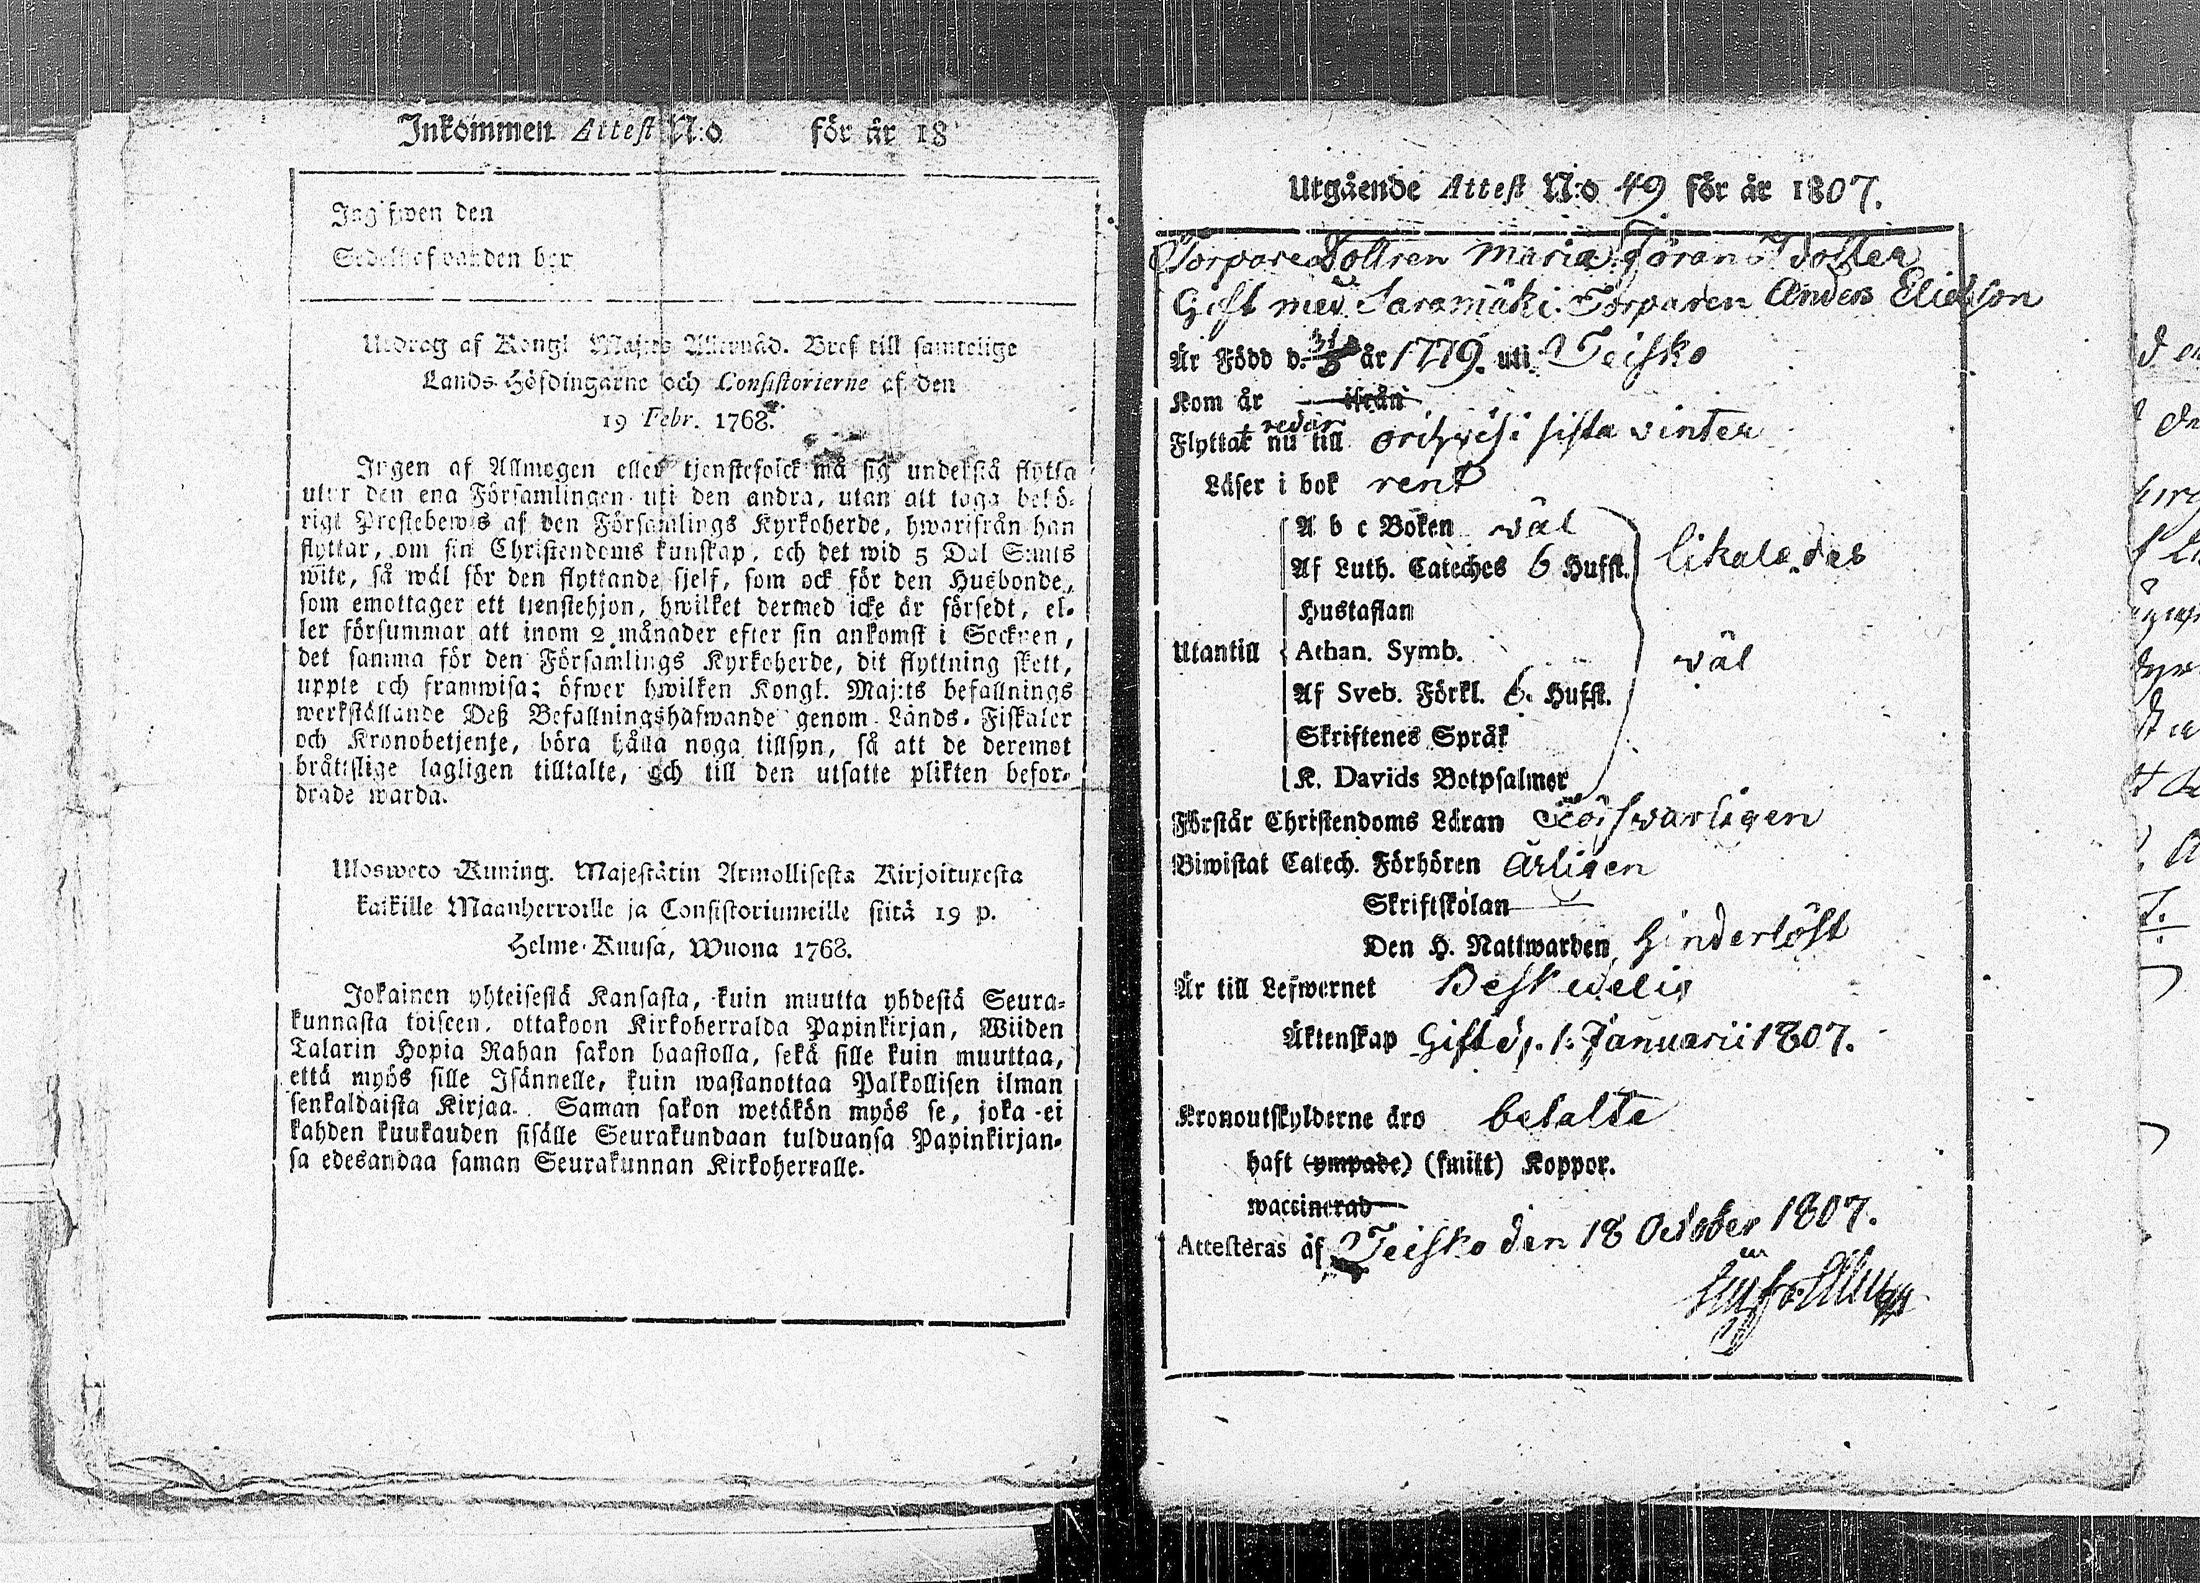 Inkommen Attest N:o för år 18
Ingifwen den
Sedelhafwanden bor
Utdrag af Kongl. Maj:ts Allernåd. Bref till samtelige
Lands-Höfdingarne och Consistorierne af den
19 Febr. 1768.
Ingen af Allmogen eller tjenstefolck må sig understå flytta
utur den ena Församlingen uti den andra, utan att taga behö-
rigt Prestebewis af den Församlings Kyrkoherde, hwarifrån han
flyttar, om sin Christendoms kunskap, och det wid 5 Dal S:mts
wite, så wäl för den flyttande sjelf, som ock för den Husbonde,
som emottager ett tjenstehjon, hwilket dermed icke är försedt, el-
ler försummar att inom 2 månader efter sin ankomst i Socknen,
det samma för den Församlings Kyrkoherde, dit flyttning skett,
uppte och framwisa; öfwer hwilken Kongl. Maj:ts befallnings
werkställande Deß Befallningshafwande genom Lands-Fiskaler
och Kronobetjente, böra hålla noga tillsyn, så att de deremot
bråttslige lagligen tilltalte, och till den utsatte plikten befor-
drade warda.
Ulosweto Kuning. Majestätin Armollisesta Kirjoituxesta
kaikille Maanherroille ja Consistoriumeille siitä 19 p.
Helme-Kuusa, Wuona 1768.
Jokainen yhteisestä Kansasta, kuin muutta yhdestä Seura-
kunnasta toiseen, ottakoon Kirkoherralda Papinkirjan, Wiiden
Talarin Hopia Rahan sakon haastolla, sekä sille kuin muuttaa,
että myös sille Isännelle, kuin wastanottaa Palkollisen ilman
senkaldaista Kirjaa. Saman sakon wetäkön myös se, joka ei
kahden kuukauden sisälle Seurakundaan tulduansa Papinkirjan-
sa edesandaa saman Seurakunnan Kirkoherralle.
Utgående Attest N:o 49 för år 1807.
Torpare Dottren Maria Jörans dotter
Gift med Saramäki Torparen Anders Eliasson
Är Född d. år 1779. uti Teisko
Kom år ifrån
redan
Flyttat nu till Orihwesi sista vinter
Läser i bok rent
A b c Boken wäl
Af Luth. Cateches 6 Hufst. likaledes
Hustaflan
Utantill Athan. Symb. wäl
Af Sveb. Förkl. 6. Hufst.
Skriftenes Språk
K. Davids Botpsalmer
Förstår Christendoms Läran Försvarligen
Biwistat Catech. Förhören Ärligen
Skriftskolan
Den H. Nattwarden Hinderlöst
Är till Lefwernet Beskedelig
Äktenskap Gift d. 1. Januarii 1807.
Kronoutskylderne äro betalte
haft (ympade) (smitt) Koppor.
waccinerad
Attesteras af Teisko den 18 October 1807.